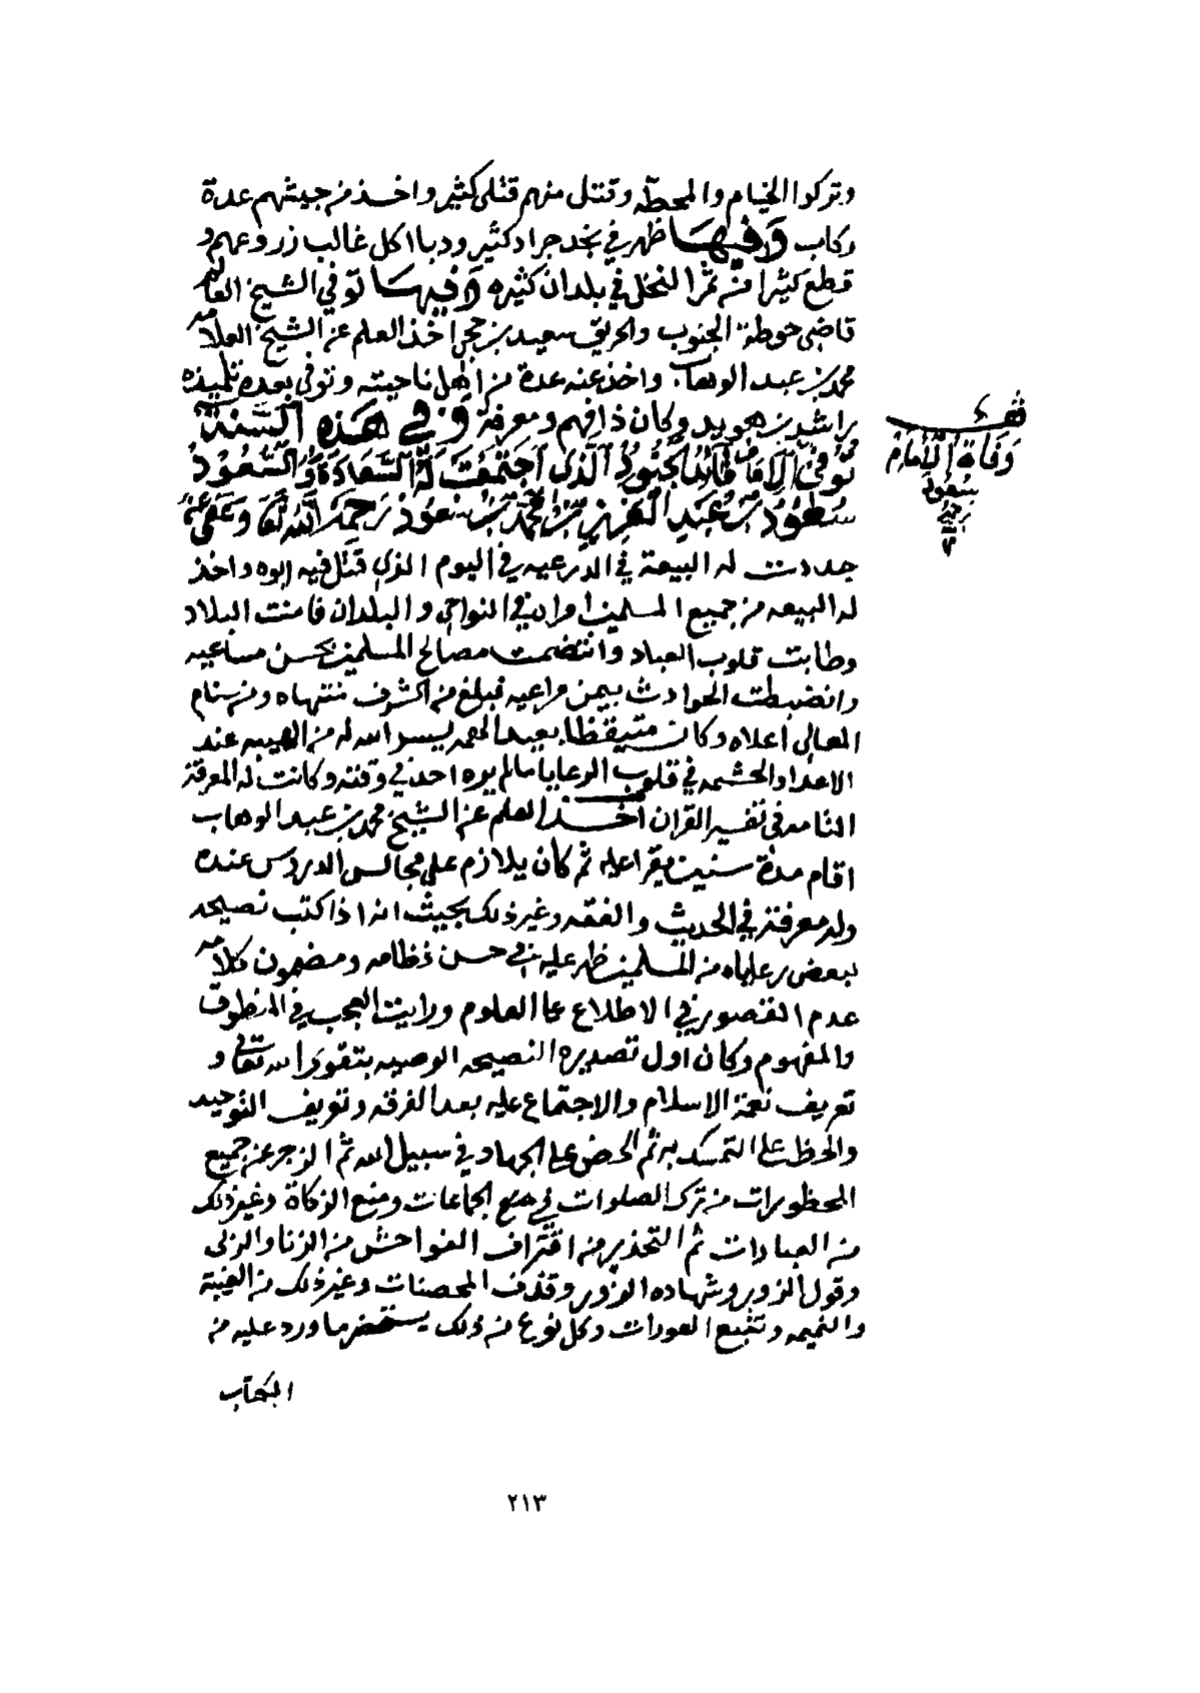 وتركوا الخيام والمحطه وقتل منهم قتلى كثير واخذ من جيشهم عدة
ركاب وفيها ظهر في نجد جراد كثير ودبا اكل غالب زروعهم و
قطع كثيرا من ثمر النخل في بلدان كثيره وفيها توفي الشيخ العالم
قاضي حوطة الجنوب والحريق سعيد بن حجي اخذ العلم عن الشيخ العلامه
محمد بن عبد الوهاب واخذ عنه عدة من اهل ناحيته وتوفي بعده تلميذه
راشد بن هويد وكان ذا فهم ومعرفة وفي هذه السنة
توفي الامام قائد الجنود الذي اجتمعت له السعادة والسعود
سعود بن عبد العزيز بن محمد بن سعود رحمه الله تعالى وعفى عنه
جددت له البيعة في الدرعيه في اليوم الذي قتل فيه ابوه واخذ
له البيعه من جميع المسلمين امراء في النواحي والبلدان فامنت البلاد
وطابت قلوب العباد وانتضمت مصالح المسلمين بحسن مساعيه
وانضبطت الحوادث بيمن مراعيه فبلغ من الشرف منتهاه ومن سنام
المعالي اعلاه وكان متيقظا بعيد الهمه يسر الله له من الهيبه عند
الاعداء والحشمه في قلوب الرعايا مالم يره احد في وقته وكانت له المعرفة
التامه في تفسير القران اخذ العلم عن الشيخ محمد بن عبد الوهاب
اقام مدة سنين يقرا عليه ثم كان يلازم على مجالس الدروس عنده
وله معرفة في الحديث والفقه وغير ذلك بحيث انه اذا كتب نصيحه
لبعض رعاياه من المسلمين ظهر عليه في حسن نظامه ومضمون كلامه
عدم القصور في الاطلاع على العلوم ورايت العجب في المنطوق
والمفهوم وكان اول تصديره النصيحه الوصيه بتقوى الله تعالى و
تعريف نعمة الاسلام والاجتماع عليه بعد الفرقه وتعريف التوحيد
والحظ على التمسك به ثم الحض على الجهاد في سبيل الله ثم الزجر عن جميع
المحظورات من ترك الصلوات في جميع الجماعات ومنع الزكاة وغير ذلك
من العبادات ثم التحذير من اقتراف الفواحش من الزنا والربى
وقول الزور وشهاده الزور وقذف المحصنات وغير ذلك من الغيبة
والنميمه وتتبع العورات وكل نوع من ذلك يستحضر ما ورد عليه من
الكتاب
وفاة الامام
سعود
رحمه
٢١٣